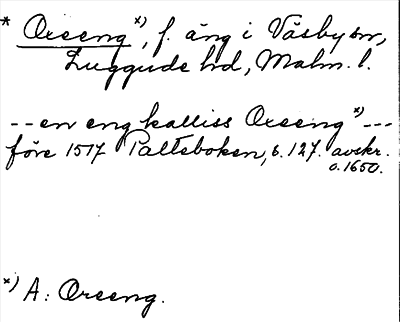 * Oxeeng x), f. äng i Väsby sn,
Luggude hd, Malm. l.
-- en eng kalliss Oxeeng x) ---
före 1517 Palteboken, s. 127. avskr.
o. 1650.
x) A: Oreeng.